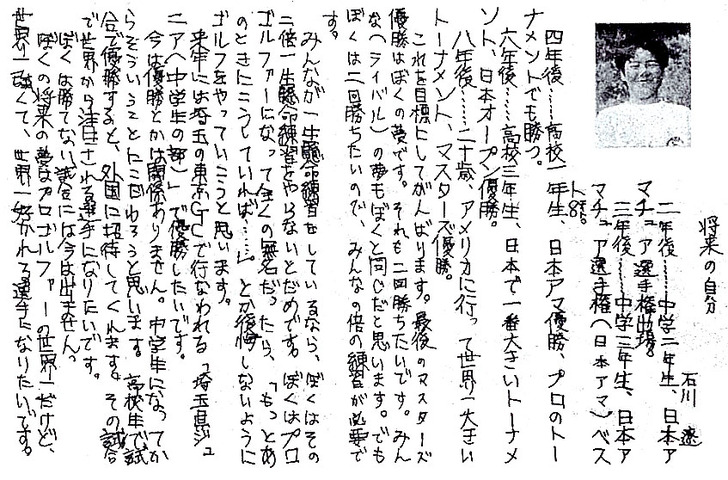 将来の自分
石川 遼
二年後……中学二年生、日本ア
マチュア選手権出場。
三年後……中学三年生、日本ア
マチュア選手権(日本アマ)ベス
ト8。
四年後……高校一年生、日本アマ優勝、プロのトー
ナメントでも勝つ。
六年後……高校三年生、日本で一番大きいトーナメ
ント、日本オープン優勝。
八年後……二十歳、アメリカに行って世界一大きい
トーナメント、マスターズ優勝。
これを目標にしてがんばります。最後のマスターズ
優勝はぼくの夢です。それも二回勝ちたいです。みん
な(ライバル)の夢もぼくと同じだと思います。でも
ぼくは二回勝ちたいので、みんなの倍の練習が必要で
す。
みんなが一生懸命練習をしているなら、ぼくはその
二倍、一生懸命練習をやらないとだめです。ぼくはプロ
ゴルファーになって全くの無名だったら、「もっとあ
のときにこうしていれば……」とか後悔しないように
ゴルフをやっていこうと思います。
来年には埼玉の東京GCで行なわれる「埼玉県ジュ
ニア(中学生の部)」で優勝したいです。
今は優勝とかは関係ありません。中学生になってか
らそういうことにこだわろうと思います。高校生で試
合で優勝すると、外国に招待してくれます。その試合
で世界から注目される選手になりたいです。
ぼくは勝てない試合には今は出ません。
ぼくの将来の夢はプロゴルファーの世界一だけど、
世界一強くて、世界一好かれる選手になりたいです。